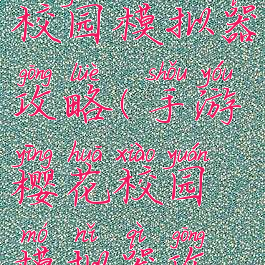 校园模拟器
gōng lüè shǒu yóu
攻略(手游
yīng huā xiào yuán
樱花校园
mó nǐ qì gōng
模拟器攻